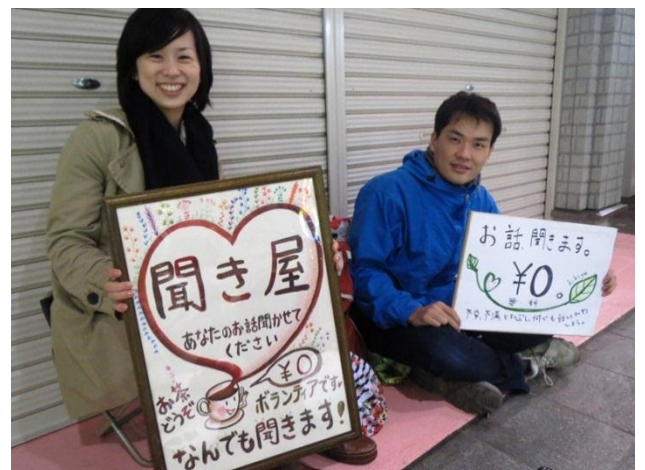 聞き屋
あなたのお話聞かせて
ください
お茶
どうぞ
¥0
ボランティアです。
なんでも聞きます!
お話、聞きます。
¥0。
無料